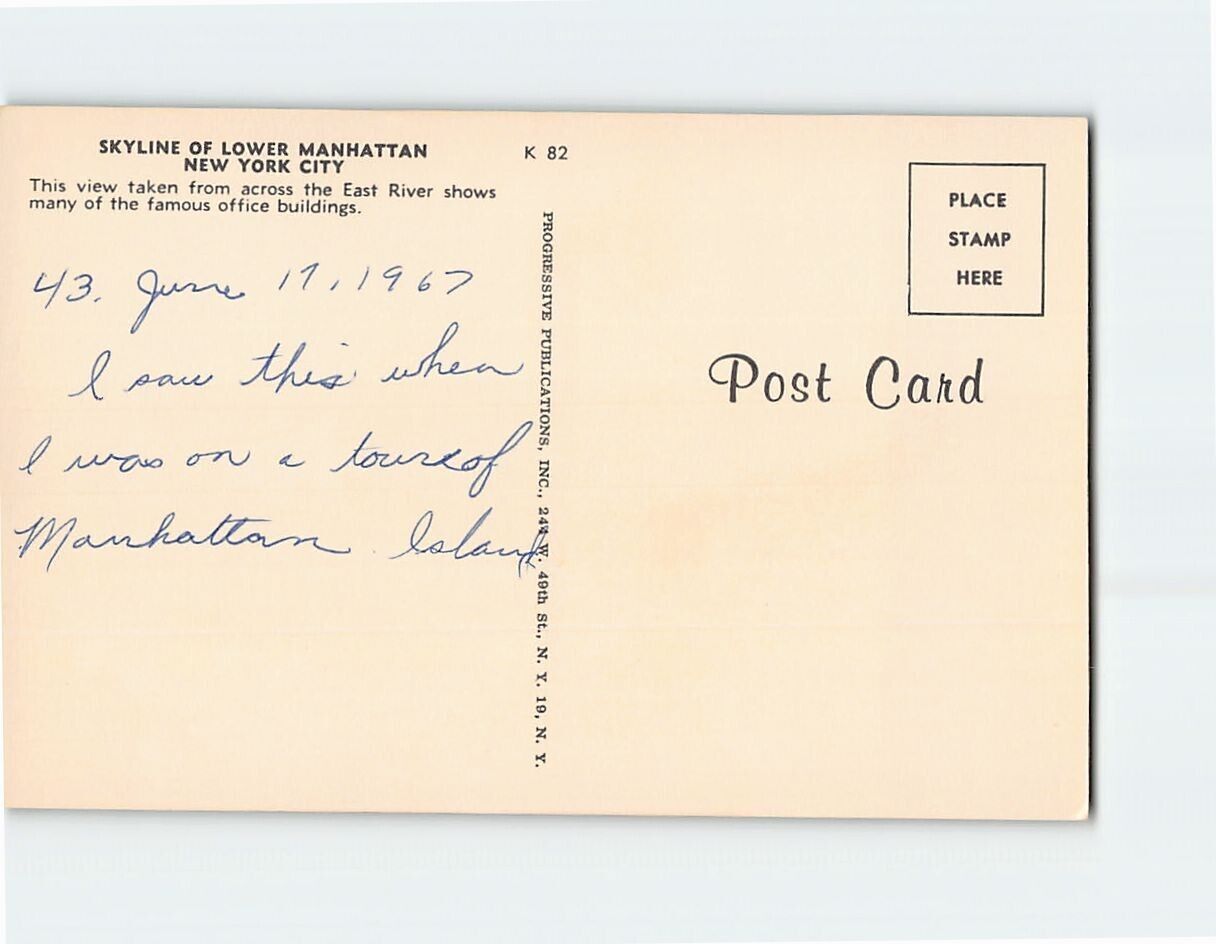 SKYLINE OF LOWER MANHATTAN
NEW YORK CITY
This view taken from across the East River shows
many of the famous office buildings.
K 82
43. June 17, 1967
I saw this when
I was on a tour of
Manhattan Island
PROGRESSIVE PUBLICATIONS, INC., W. 49th St., N. Y. 19, N. Y.
PLACE
STAMP
HERE
Post Card